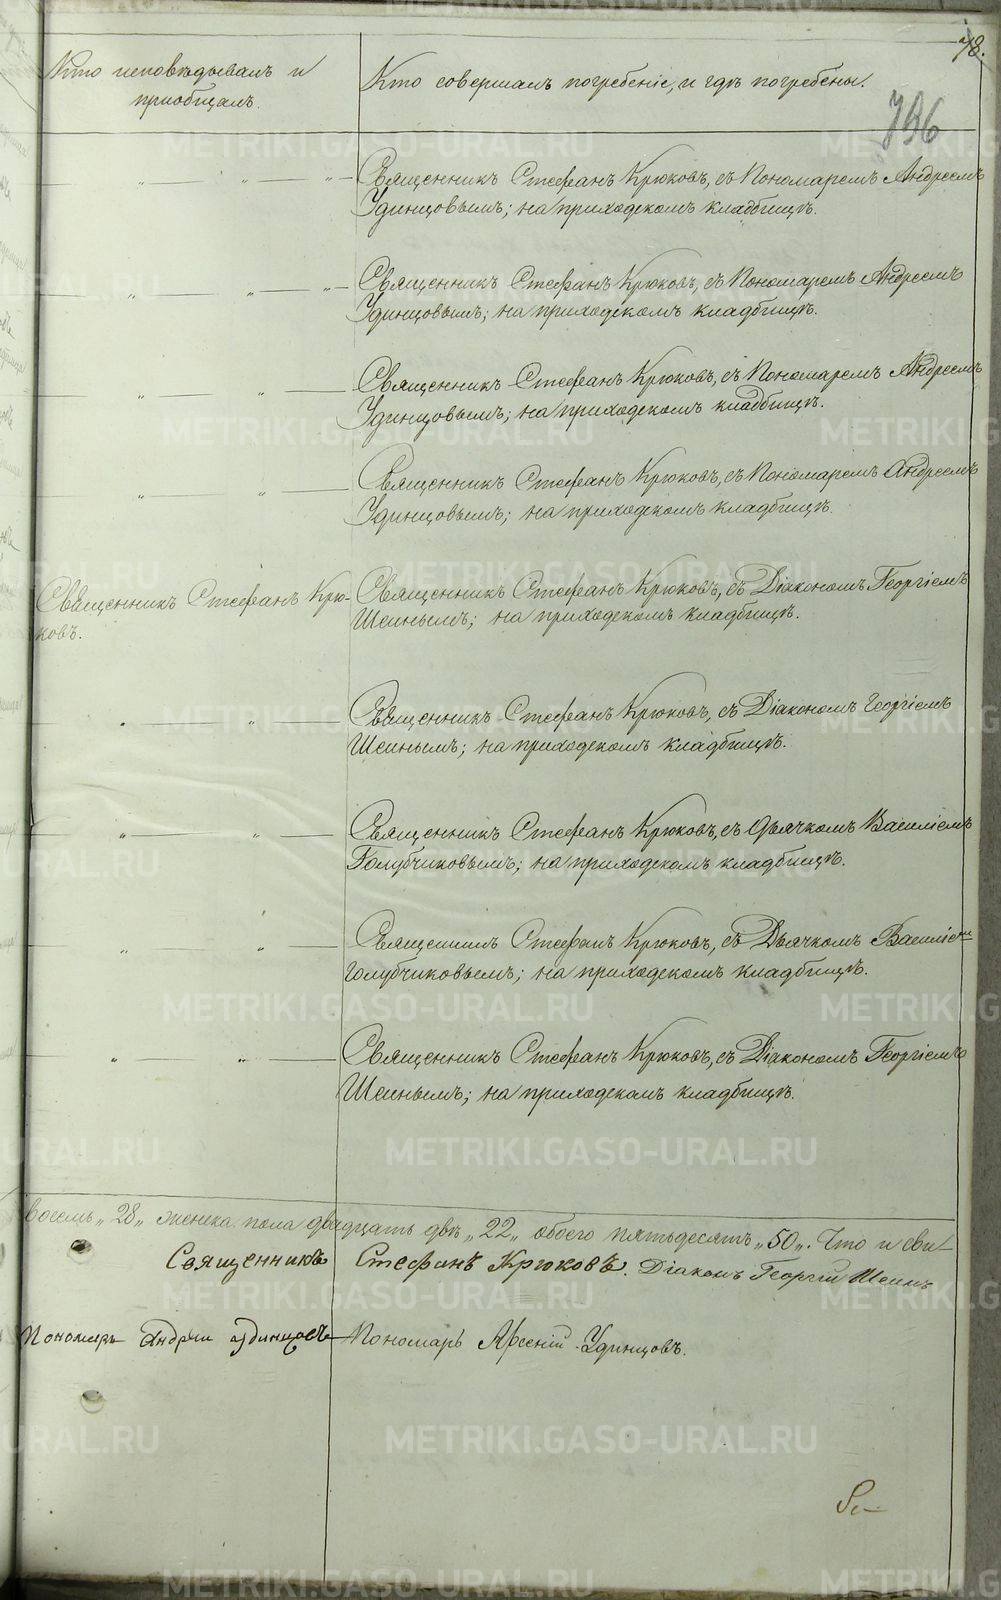 78.
Кто исповѣдывалъ и
пріобщалъ.
Кто совершалъ погребеніе, и гдѣ погребены.
796
„ „ „ Священникъ Стефанъ Крюковъ, съ Пономаремъ Андреемъ
Удинцовымъ; на приходскомъ кладбищѣ.
„ „ „ Священникъ Стефанъ Крюковъ, съ Пономаремъ Андреемъ
Удинцовымъ; на приходскомъ кладбищѣ.
„ „ Священникъ Стефанъ Крюковъ, съ Пономаремъ Андреемъ
Удинцовымъ; на приходскомъ кладбищѣ.
„ „ Священникъ Стефанъ Крюковъ, съ Пономаремъ Андреемъ
Удинцовымъ; на приходскомъ кладбищѣ.
Священникъ Стефанъ Крю-
ковъ.
Священникъ Стефанъ Крюковъ, съ Діакономъ Георгіемъ
Шеинымъ; на приходскомъ кладбищѣ.
„ „ Священникъ Стефанъ Крюковъ, съ Діакономъ Георгіемъ
Шеинымъ; на приходскомъ кладбищѣ.
„ „ Священникъ Стефанъ Крюковъ, съ Дьячкомъ Василіемъ
Голубчиковымъ; на приходскомъ кладбищѣ.
„ „ Священникъ Стефанъ Крюковъ, съ Дьячкомъ Василіемъ
Голубчиковымъ; на приходскомъ кладбищѣ.
„ „ Священникъ Стефанъ Крюковъ, съ Діакономъ Георгіемъ
Шеинымъ; на приходскомъ кладбищѣ.
восемь „28„ женска пола двадцать двѣ „22„ обоего пятьдесятъ „50„. Что и сви-
Священникъ Стефанъ Крюковъ. Діаконъ Георгій Шеинъ
Пономарь Андрей Удинцовъ Пономарь Арсеній Удинцовъ.
METRIKI.GASO-URAL.RU